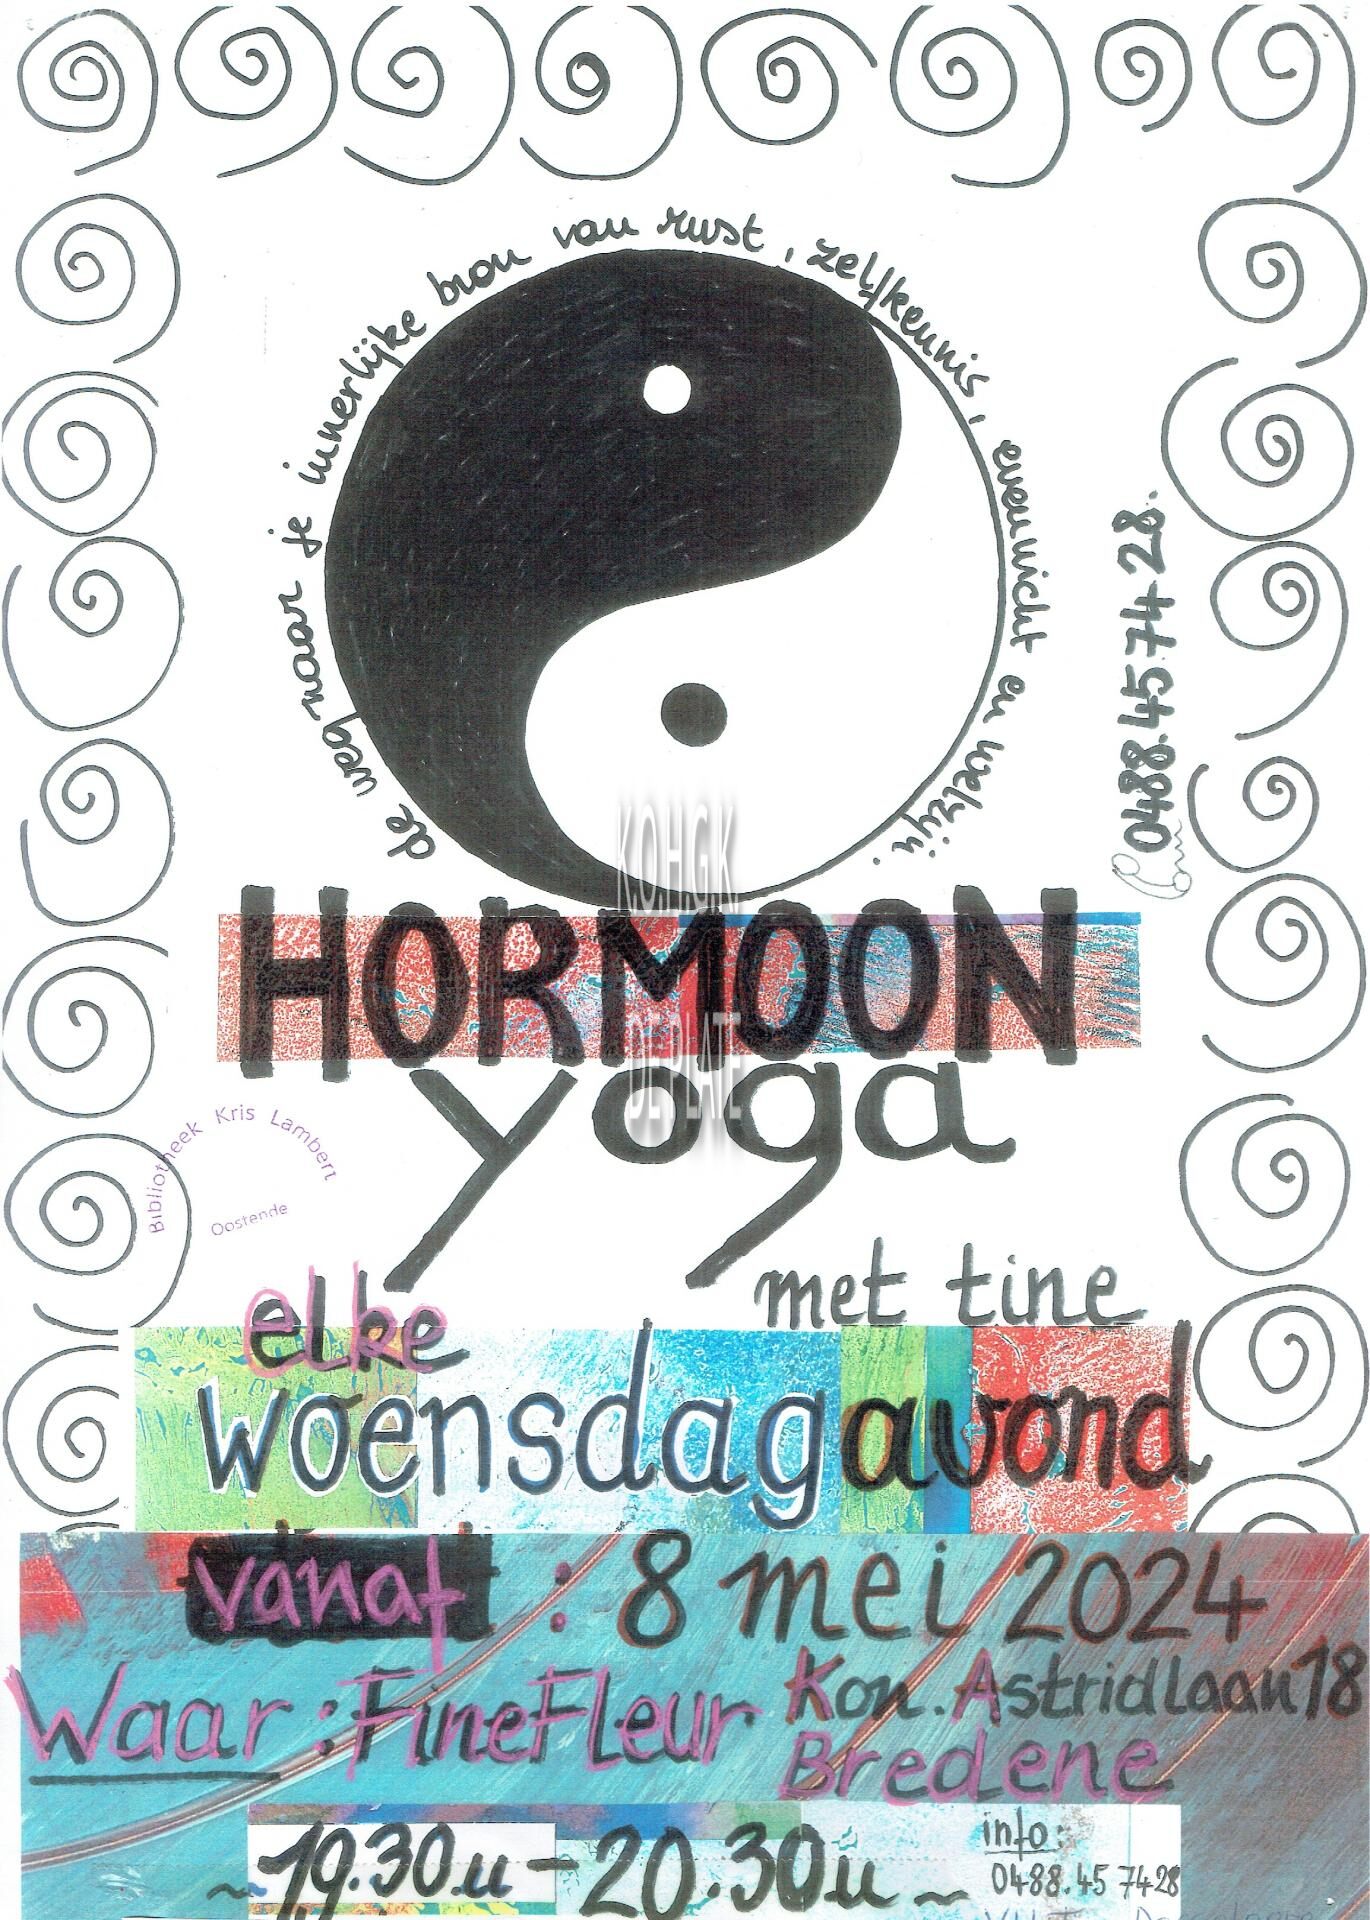 de weg naar je innerlijke bron van rust, zelfkennis, evenwicht en welzijn.
0488.45 74 28.
K.O.H.G.K.
DE PLATE
HORMOON
yoga
Bibliotheek Kris Lambert
Oostende
met tine
elke
woensdagavond
vanaf : 8 mei 2024
Waar : FineFleur Kon. Astridlaan 18
Bredene
~ 19.30.u - 20.30u ~
info:
0488.45 7428